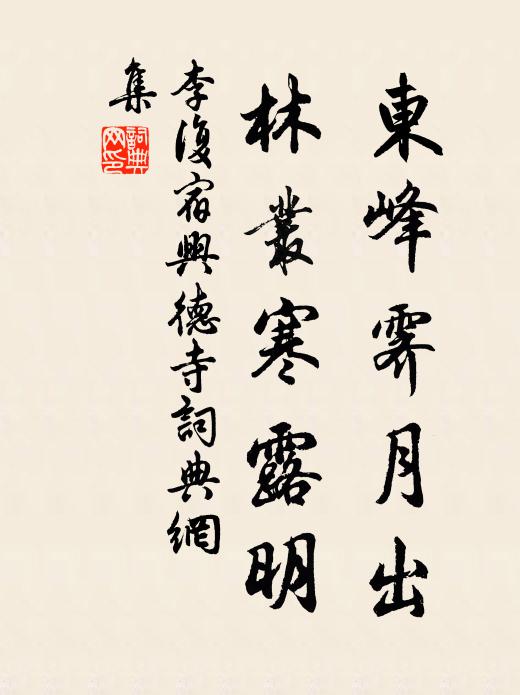 東峰霽月出
林叢寒露明
李復宿興德寺詞典網
集
詞典
网印